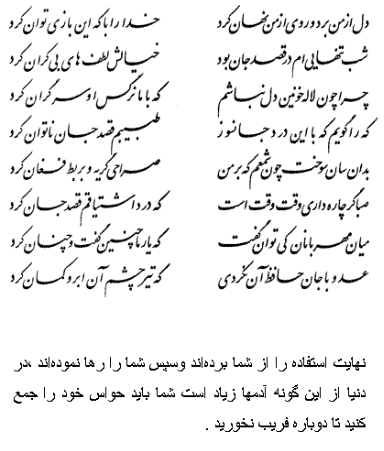 دل از من برد و روی از من نهان کرد خدا را با که این بازی توان کرد
شب تنهایی ام در قصد جان بود خیالش لطف های بی کران کرد
چرا چون لاله خونین دل نباشم که با ما نرگس او سرگران کرد
که را گویم که با این درد جان سوز طبیبم قصد جان ناتوان کرد
بدان سان سوخت چون شمعم که بر من صراحی گریه و بربط فغان کرد
صبا گر چاره داری وقت وقت است که درد اشتیاقم قصد جان کرد
میان مهربانان کی توان گفت که یار ما چنین گفت و چنان کرد
عدو با جان حافظ آن نکردی که تیر چشم آن ابرو کمان کرد
نهایت استفاده را از شما برده‌اند وسپس شما را رها نموده‌اند ،در
دنیا از این گونه آدمها زیاد است شما باید حواس خود را جمع
کنید تا دوباره فریب نخورید .